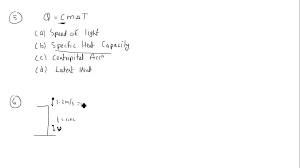 5 Q = CmΔT
(a) Speed of light
(b) Specific Heat Capacity
(c) Centripetal Accn
(d) Latent Heat
6